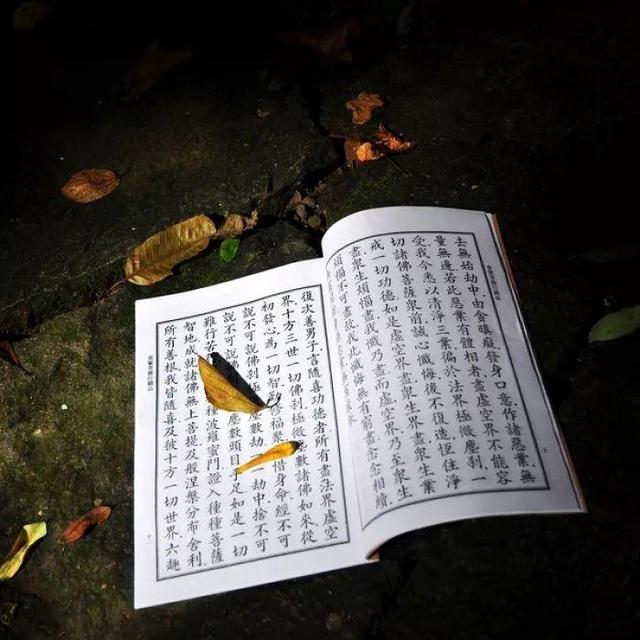 去無始劫中由貪瞋癡發身口意作諸惡業無
量無邊若此惡業有體相者盡虛空界不能容
受我今悉以清淨三業徧於法界極微塵剎一
切諸佛菩薩眾前誠心懺悔後不復造恆住淨
戒一切功德如是虛空界盡眾生界盡眾生業
盡眾生煩惱盡我懺乃盡而虛空界乃至眾生
煩惱不可盡故我此懺悔無有窮盡念念相續
復次善男子言隨喜功德者所有盡法界虛空
界十方三世一切佛剎極微塵數諸佛如來從
初發心為一切智福聚惜身命經不可
說不可說佛剎極數劫一劫中捨不可
說不可說佛塵數頭目手足如是一切
難行苦種波羅蜜門證入種種菩薩
智地成就諸佛無上菩提及般涅槃分布舍利
所有善根我皆隨喜及彼十方一切世界六趣